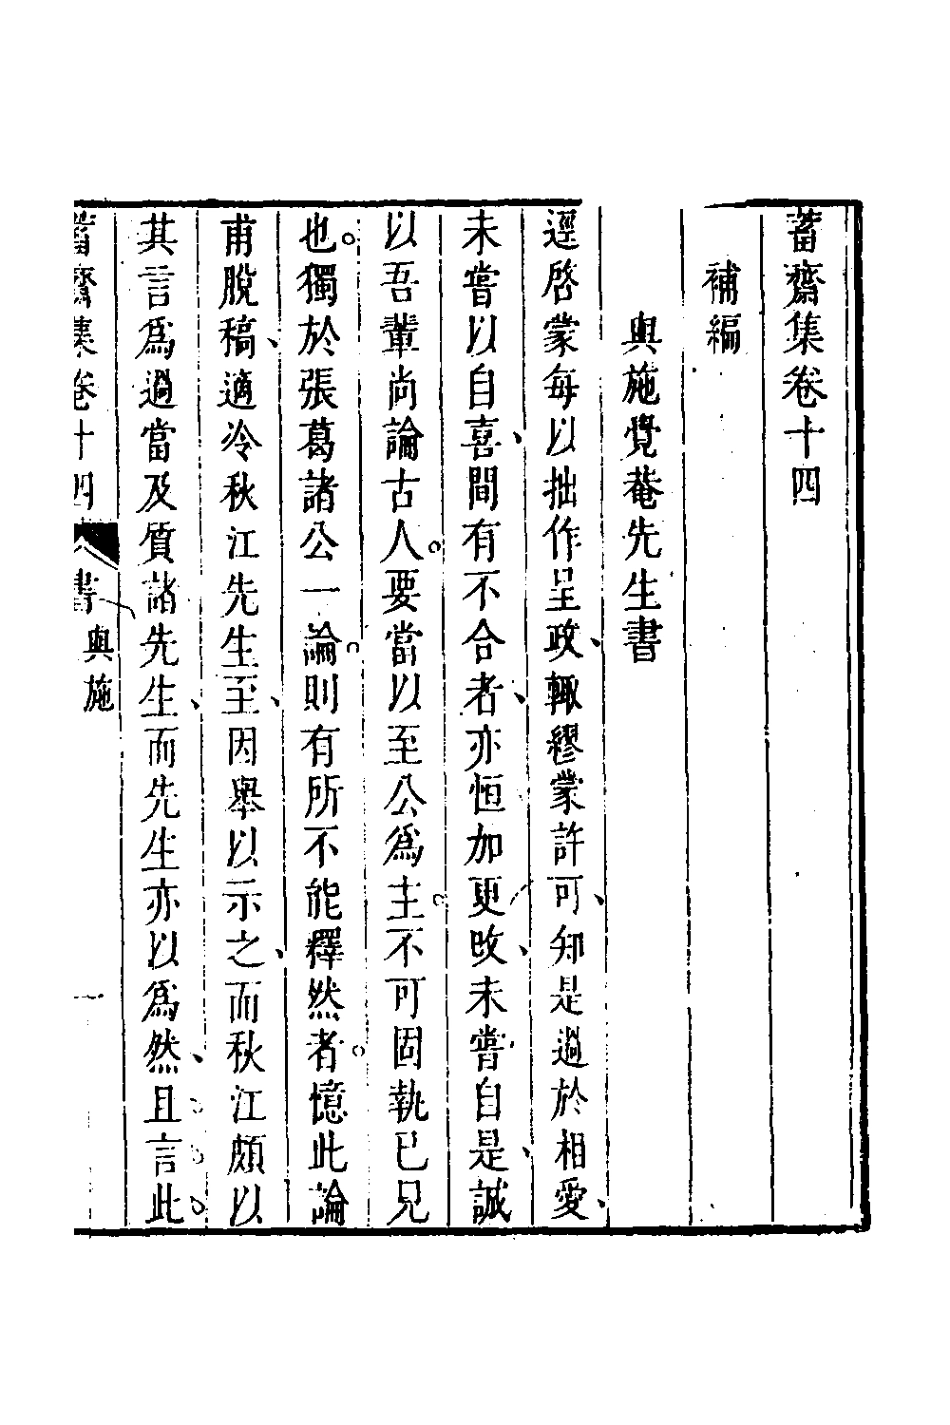 蓄齋集卷十四
補編
與施覺菴先生書
逕啓蒙每以拙作呈政、輒繆蒙許可、知是過於相愛、
未嘗以自喜、間有不合者、亦恒加更改、未嘗自是、誠
以吾輩尚論古人。要當以至公爲主。不可固執已見
也。獨於張葛諸公一論。則有所不能釋然者。憶此論
甫脫稿、適冷秋江先生至、因舉以示之、而秋江頗以
其言爲過當及質諸先生、而先生亦以爲然、且言此
蓄齋集卷十四
書
與施
一